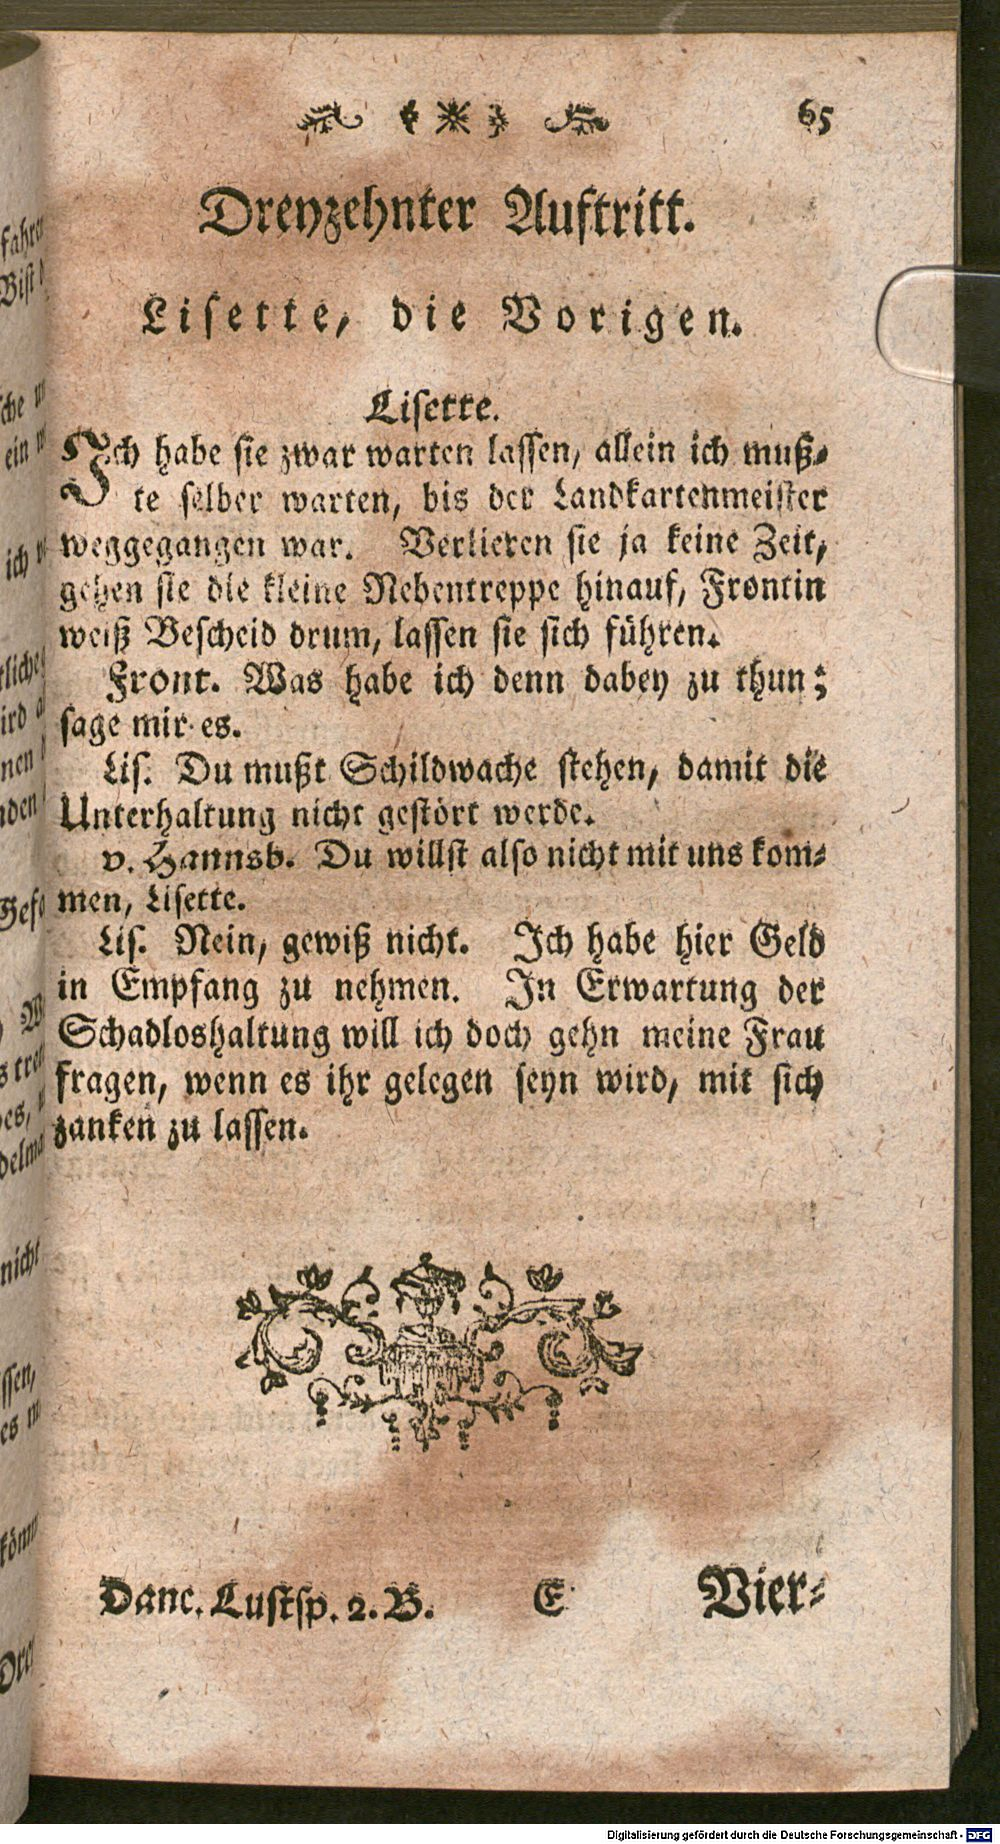 65
Dreyzehnter Auftritt.
Lisette, die Vorigen.
Lisette.
Ich habe sie zwar warten lassen, allein ich muß-
te selber warten, bis der Landkartenmeister
weggegangen war. Verlieren sie ja keine Zeit,
gehen sie die kleine Nebentreppe hinauf, Frontin
weiß Bescheid drum, lassen sie sich führen.
Front. Was habe ich denn dabey zu thun;
sage mir es.
Lis. Du mußt Schildwache stehen, damit die
Unterhaltung nicht gestört werde.
v. Hannsb. Du willst also nicht mit uns kom-
men, Lisette.
Lis. Nein, gewiß nicht. Ich habe hier Geld
in Empfang zu nehmen. In Erwartung der
Schadloshaltung will ich doch gehn meine Frau
fragen, wenn es ihr gelegen seyn wird, mit sich
zanken zu lassen.
Danc. Lustsp. 2. B. E Vier-
Digitalisierung gefördert durch die Deutsche Forschungsgemeinschaft - DFG